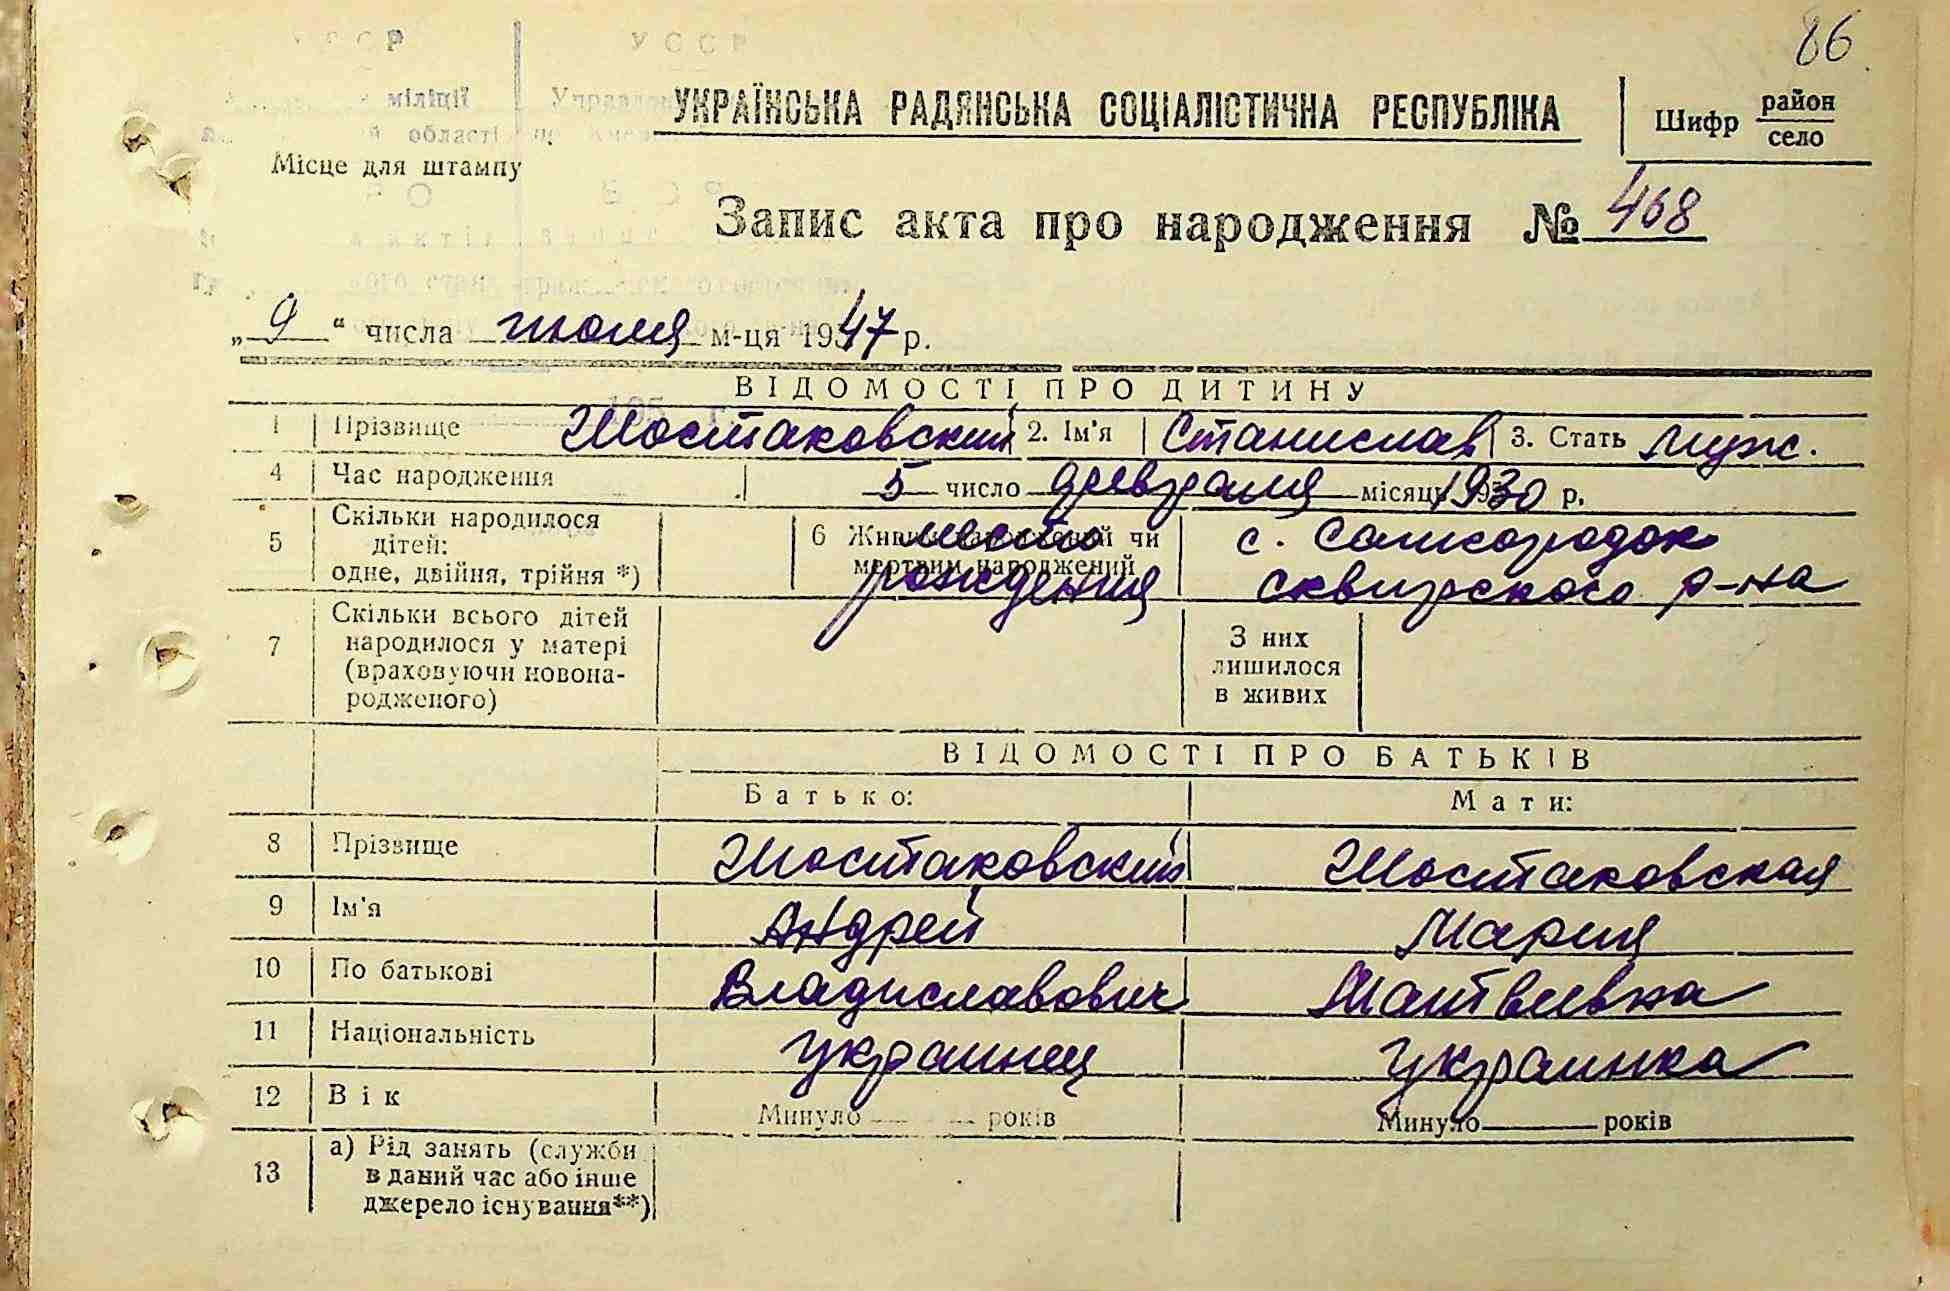 86
УССР УССР
міліції
області
УКРАЇНСЬКА РАДЯНСЬКА СОЦІАЛІСТИЧНА РЕСПУБЛІКА
Шифр район
село
Місце для штампу
Запис акта про народження № 468
„ 9 “ числа июля м-ця 1947 р.
ВІДОМОСТІ ПРО ДИТИНУ
1 Прізвище Шостаковский 2. Ім'я Станислав 3. Стать муж.
4 Час народження 5 число февраля місяць 1930 р.
5 Скільки народилося дітей: одне, двійня, трійня *)
6 Живим народжений чи мертвим народжений
место рождения
с. Самгородок
сквирского р-на
7 Скільки всього дітей народилося у матері (враховуючи новонародженого)
З них лишилося в живих
ВІДОМОСТІ ПРО БАТЬКІВ
Батько: Мати:
8 Прізвище Шостаковский Шостаковская
9 Ім'я Андрей Мария
10 По батькові Владиславович Матвеевна
11 Національність украинец украинка
12 Вік Минуло років Минуло років
13 а) Рід занять (служби
в даний час або інше
джерело існування**)